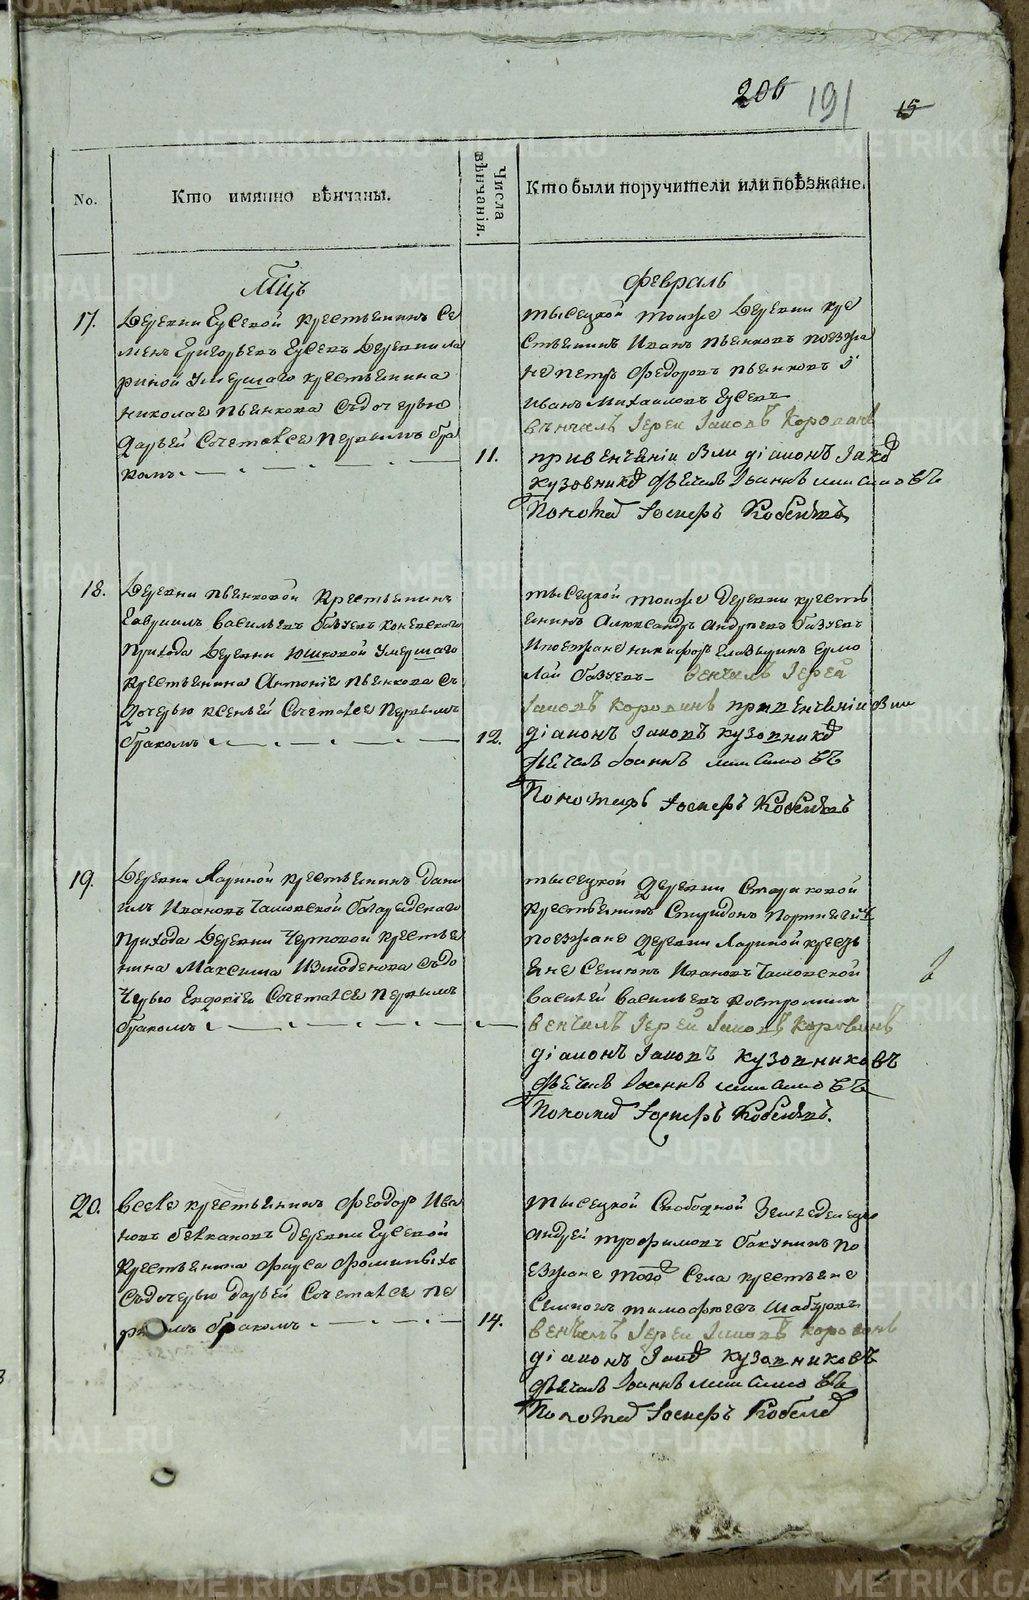 206 191 15
No.
Кто имянно вѣнчаны.
Числа вѣнчанія.
Кто были поручители или поѣзжане.
Мцъ
Февраль
17.
Деревни Гусевой крестьянинъ Се
менъ Григорьевъ Гусевъ деревни Ла
риной умершаго крестьянина
Николая Пьянкова съ дочерью
Дарьей Сочетался первымъ бра
комъ
11.
тысецкой тоиже деревни кре
стьянинъ Иванъ Пьянковъ поезжа
не Петръ Федоровъ Пьянковъ и
Иванъ Михаиловъ Гусевъ
вѣнчалъ Іерей Іаковъ Коровинъ
при венчаніи были діаконъ Іаков
Кузовников Дьячекъ Іоаннъ
Пономар Іосифъ
18.
Деревни Пьянковой крестьянинъ
Гавриилъ Васильевъ Коневскаго
прихода деревни Юшковой умершаго
крестьянина Антонія Пьянкова съ
дочерью Ксеньей Сочетался первымъ
бракомъ
12.
тысецкой тоиже деревни кресть
янинъ Александръ Андреевъ
и поезжане Никифоръ Ермо
лай венчалъ Іерей
Іаковъ Коровинъ при венчаніи были
діаконъ Іаковъ Кузовников
Дьячекъ Іоаннъ
Пономарь Іосифъ
19.
Деревни Лариной крестьянинъ Дани
илъ Ивановъ Чамовской Багарядскаго
прихода деревни Чертовой крестья
нина Максима Измоденова съ до
черью Евдокіей Сочетался первымъ
бракомъ
тысецкой деревни Стариковой
крестьянинъ Спиридонъ
поезжане деревни Лариной кресть
яне Семенъ Ивановъ Чамовской
Василей Васильевъ Костромин
венчалъ Іерей Іаковъ Коровинъ
діаконъ Іаковъ Кузовниковъ
Дьячекъ Іоаннъ
Пономар Іосифъ
20.
Села крестьянинъ Феодоръ Ива
новъ деревни Гусевой
крестьянина Фирса Фоминыхъ
съ дочерью Дарьей Сочетался пе
рвымъ бракомъ
14.
тысецкой Свободной Земледелецъ
Андрей Трофимовъ Бакунинъ по
езжане того Села крестьяне
Тимофеевъ Шабуровъ
венчалъ Іерей Іаковъ Коровинъ
діаконъ Іаков Кузовниковъ
Дьячекъ Іоаннъ
Пономар Іосифъ
METRIKI.GASO-URAL.RU